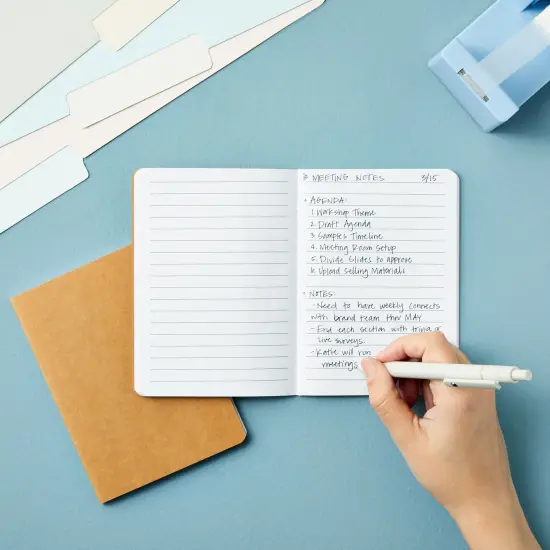 MEETING NOTES 3/15
• AGENDA:
1. Workshop Theme
2. Draft Agenda
3. Samples Timeline
4. Meeting Room Setup
5. Divide Slides to approve
6. Upload Selling Materials
• NOTES:
- Need to have weekly connects
with brand team thru MAY
- End each section with trivia or
live surveys.
- Katie will run
meetings